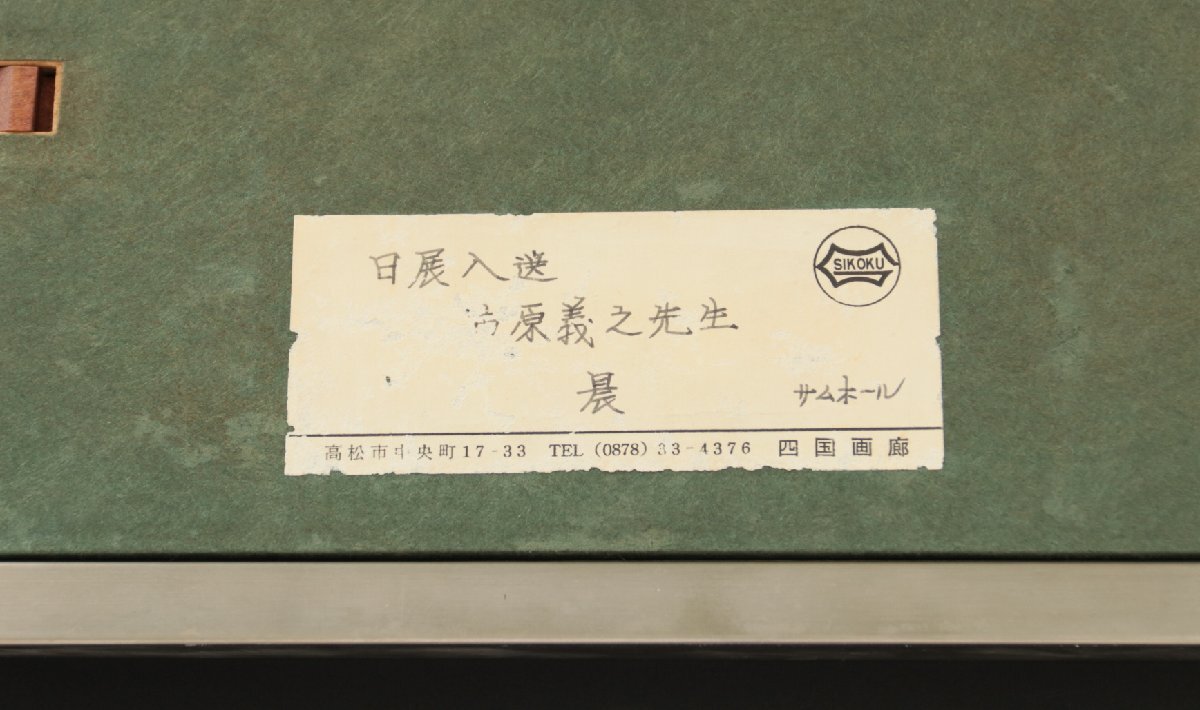 日展入選
SIKOKU
市原義之先生
晨
サムホール
高松市中央町17-33 TEL (0878) 33-4376 四国画廊